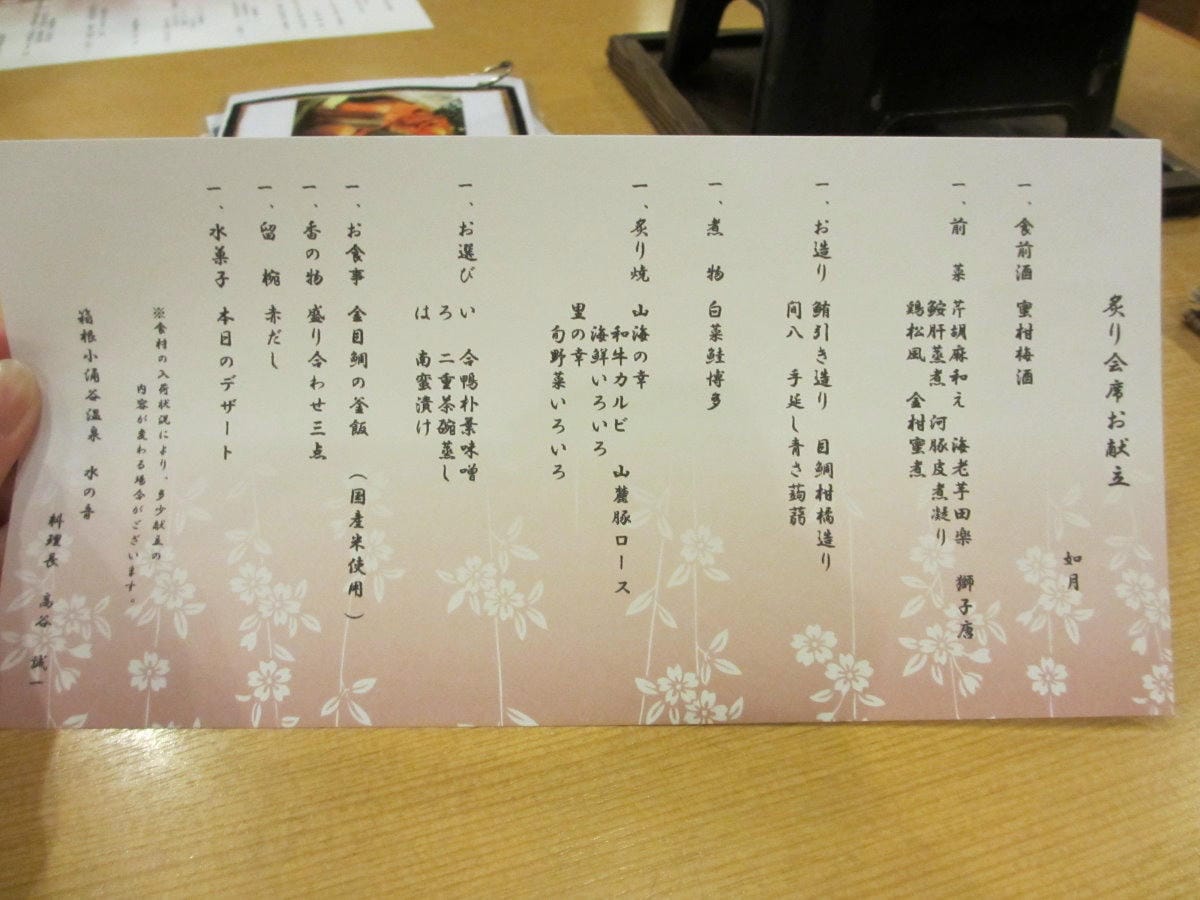 炙り会席お献立
如月
一、食前酒 蜜柑梅酒
一、前 菜 芹胡麻和え 海老芋田楽 獅子唐
鮟肝蒸煮 河豚皮煮凝り
鶏松風 金柑蜜煮
一、お造り 鮪引き造り 目鯛柑橘造り
間八 手延し青さ蒟蒻
一、煮 物 白菜鮭博多
一、炙り焼 山海の幸
和牛カルビ 山麓豚ロース
海鮮いろいろ
里の幸
旬野菜いろいろ
一、お選び い 合鴨朴葉味噌
ろ 二重茶碗蒸し
は 南蛮漬け
一、お食事 金目鯛の釜飯 (国産米使用)
一、香の物 盛り合わせ三点
一、留 椀 赤だし
一、水菓子 本日のデザート
※食材の入荷状況により、多少献立の
内容が変わる場合がございます。
箱根小涌谷温泉 水の音
料理長 高谷 誠一